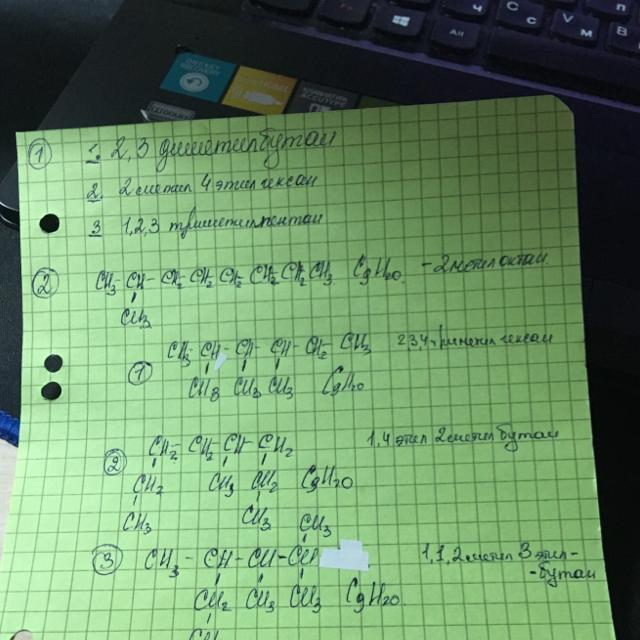 ① 1. 2,3 диметилбутан
2. 2 метил 4 этил гексан
3 1,2,3 триметилпентан
② CH3 - CH - CH2 - CH2 - CH2 - CH2 - CH2 - CH3 C9H20 - 2 метил октан
CH3
① CH3 - CH - CH - CH - CH2 - CH3 2,3,4 триметил гексан
CH3 CH3 CH3 C9H20
② CH2 - CH2 - CH - CH2 1,4 этил 2 метил бутан
CH2 CH3 CH2 C9H20
CH3 CH3
CH3
③ CH3 - CH - CH - CH 1,1,2 метил 3 этил-
-бутан
CH2 CH3 CH3 C9H20